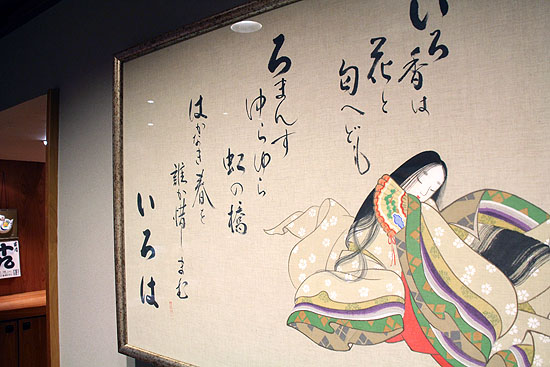 いろ香は
花と
匂へども
ろまんす
ゆらゆら
虹の橋
はかなき春を
誰か惜しまむ
いろは